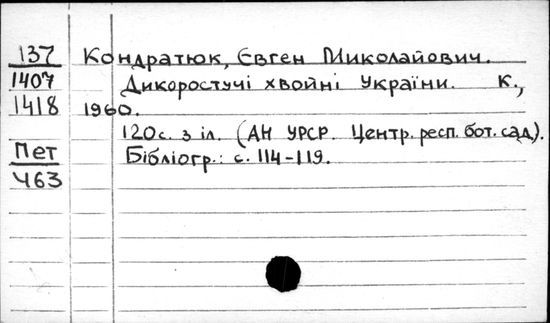 137 Кондратюк, Євген Миколайович.
1407 Дикоростучі хвойні України. К.,
1418 1960.
120с. з іл. (АН УРСР. Центр. респ. бот. сад).
Пет Бібліогр.: с. 114-119.
Ч63